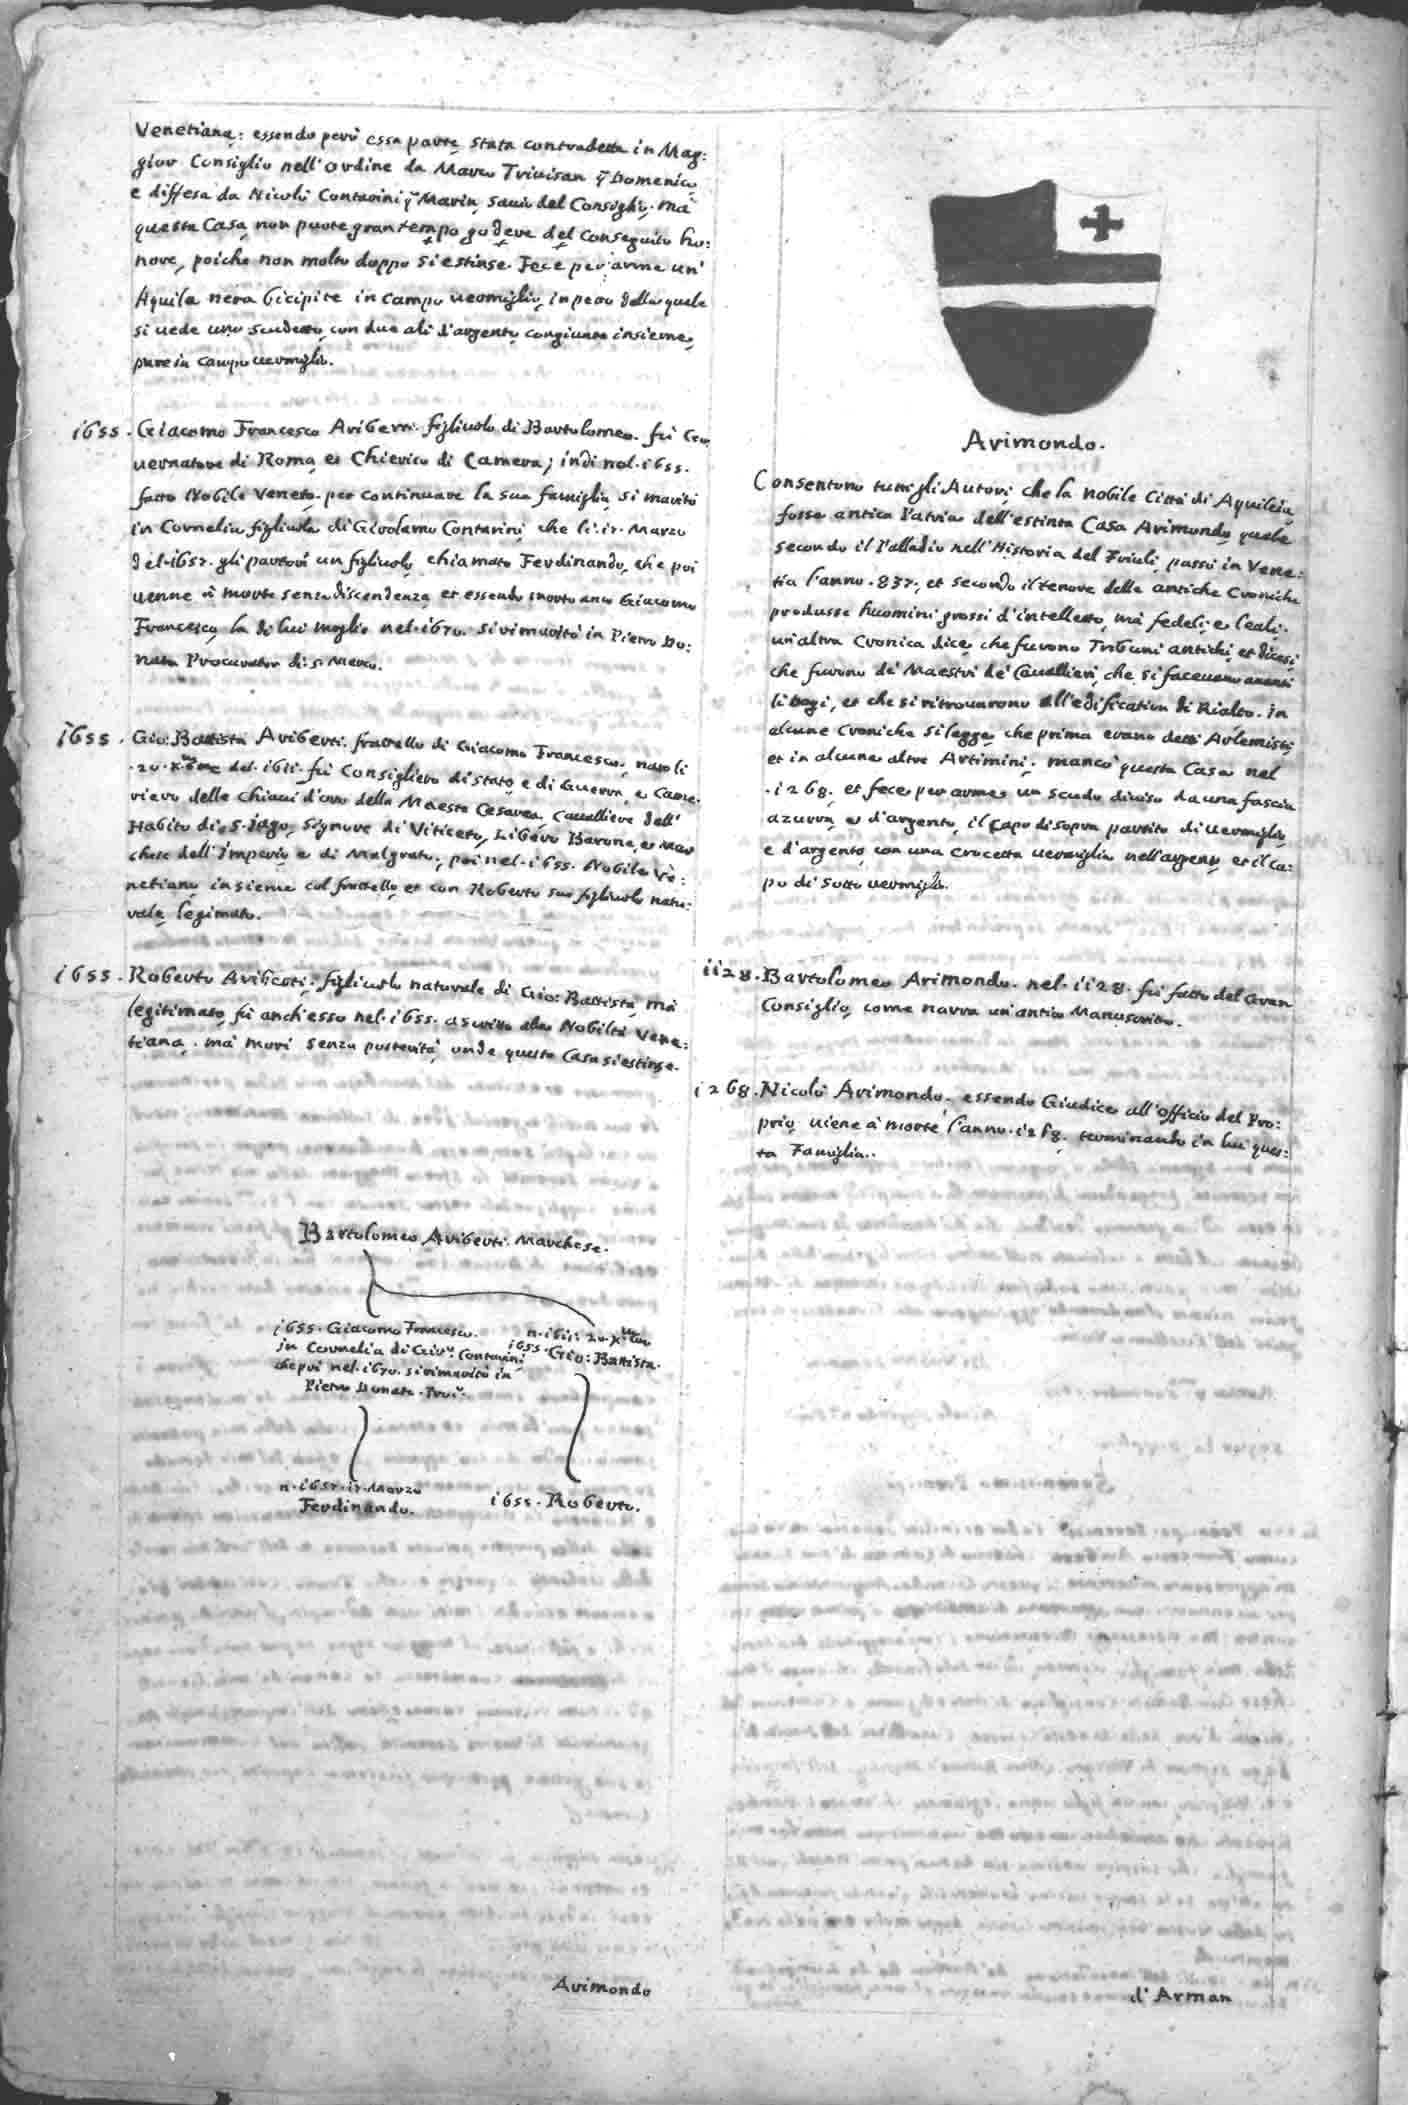 Venetiana: essendo però essa parte stata contradetta in Mag:
gior Consiglio nell'ordine da Marco Trivisan q Domenico,
e diffesa da Nicolò Contarini q Marin, savio del Consiglio. mà
questa Casa non puote gran tempo godere del conseguito ho:
nore, poiche non molto doppo si estinse. Fece per arme un'
Aquila nera bicipite in campo vermiglio, in petto della quale
si vede uno scudetto, con due ali d'argento congiunte insieme,
pure in campo vermiglio.
1655. Giacomo Francesco Ariberti. figliuolo di Bartolomeo. fù Go
vernatore di Roma, et Chierico di Camera; indi nel. 1655.
fatto Nobile Veneto. per continuare la sua famiglia, si maritò
in Cornelia figliuola di Girolamo Contarini, che li. Marzo
del. gli partorì un figliuolo, chiamato Ferdinando, che poi
venne à morte senza discendenza, et essendo morto anco Giacomo
Francesco, la di lui moglie nel. 1670. si rimaritò in Pietro Do:
nato Procurator di S. Marco.
1655. Gio: Battista Ariberti. frattello di Giacomo Francesco; nato li
.20. Xmbre del. 1611. fù Consigliero di stato, e di Guerra, e Came:
riero delle Chiavi d'oro della Maestà Cesarea, Cavalliere dell'
Habito di S. Jago, Signore di Viticeto, Libero Barone, et Mar
chese dell'Imperio, e di Malgrate, poi nel. 1655. Nobile Ve:
netiano insieme col frattello, et con Roberto suo figliuolo natu:
rale legimato.
1655. Roberto Ariberti. figliuolo naturale di Gio: Battista, mà
legitimato, fù anch'esso nel. 1655. ascritto alla Nobiltà Vene:
tiana. mà morì senza posterità, onde questa Casa si estinse.
Bartolomeo Ariberti. Marchese.
1655. Giacomo Francesco.
in Cornelia di Contarini
che poi nel. 1670. si rimaritò in
Pietro Donato.
n. 1611. 20. Xmbre
1655. Gio: Battista.
Marzo
Ferdinando.
1655. Roberto.
Arimondo
Arimondo.
Consentono tutti gli Autori che la nobile Città di Aquileia
fosse antica Patria dell'estinta Casa Arimondo, quale
secondo il Palladio nell'Historia del Friuli, passò in Vene:
tia l'anno. 837; et secondo il tenore delle antiche Croniche
produsse huomini grossi d'intelletto, mà fedeli, e leali.
un'altra Cronica dice, che furono Tribuni antichi, et dicesi,
che furono de' Maestri de' Cavallieri, che si facevano avanti
li Dogi, et che si ritrovarono all'edification di Rialto. in
alcune Croniche si legge, che prima erano detti Arlemisti,
et in alcune altre Artimini. mancò questa Casa nel
.1268. et fece per arme un scudo diviso da una fascia
azurra, e d'argento, il capo di sopra partito di vermiglio,
e d'argento, con una crocetta vermiglia nell'argento, et il ca:
po di sotto vermiglio.
1128. Bartolomeo Arimondo. nel. 1128. fù fatto del Gran
Consiglio, come narra un'antico Manuscritto.
1268. Nicolò Arimondo. essendo Giudice all'officio del Pro:
prio, viene à morte l'anno. 1268. terminando in lui ques:
ta Famiglia.
d'Arman